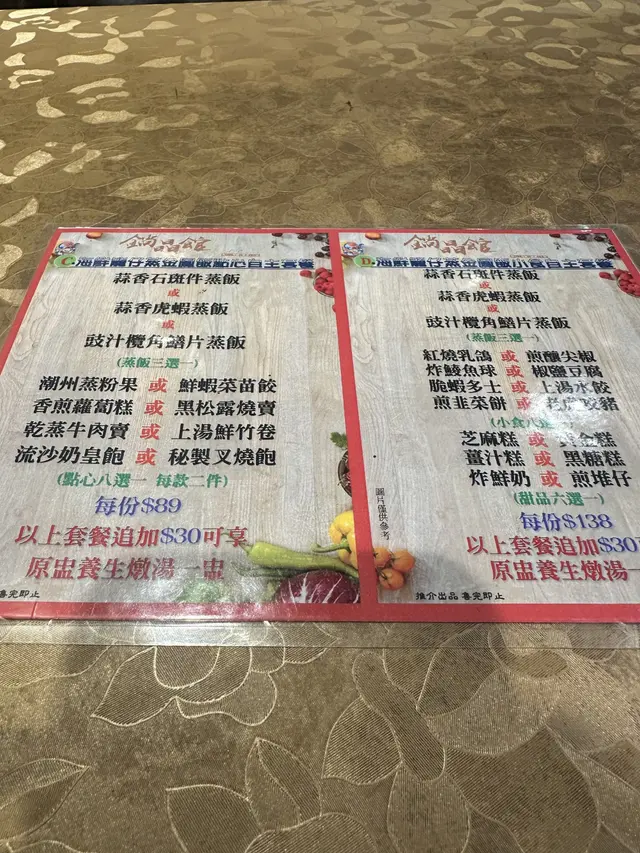 C.海鮮籠仔蒸金鳳飯點心自主套餐
蒜香石斑件蒸飯
或
蒜香虎蝦蒸飯
或
豉汁欖角鱔片蒸飯
(蒸飯三選一)
潮州蒸粉果 或 鮮蝦菜苗餃
香煎蘿蔔糕 或 黑松露燒賣
乾蒸牛肉賣 或 上湯鮮竹卷
流沙奶皇飽 或 秘製叉燒飽
(點心八選一 每款二件)
每份$89
以上套餐追加$30可享
原盅養生燉湯一盅
售完即止
D.海鮮籠仔蒸金鳳飯小食自主套餐
蒜香石斑件蒸飯
或
蒜香虎蝦蒸飯
或
豉汁欖角鱔片蒸飯
(蒸飯三選一)
紅燒乳鴿 或 煎釀尖椒
炸鯪魚球 或 椒鹽豆腐
脆蝦多士 或 上湯水餃
煎韭菜餅 或
(小食八選
芝麻糕 或 黃金糕
薑汁糕 或 黑糖糕
炸鮮奶 或 煎堆仔
(甜品六選一)
每份$138
以上套餐追加$30
原盅養生燉湯一
圖片僅供參考
推介出品 售完即止